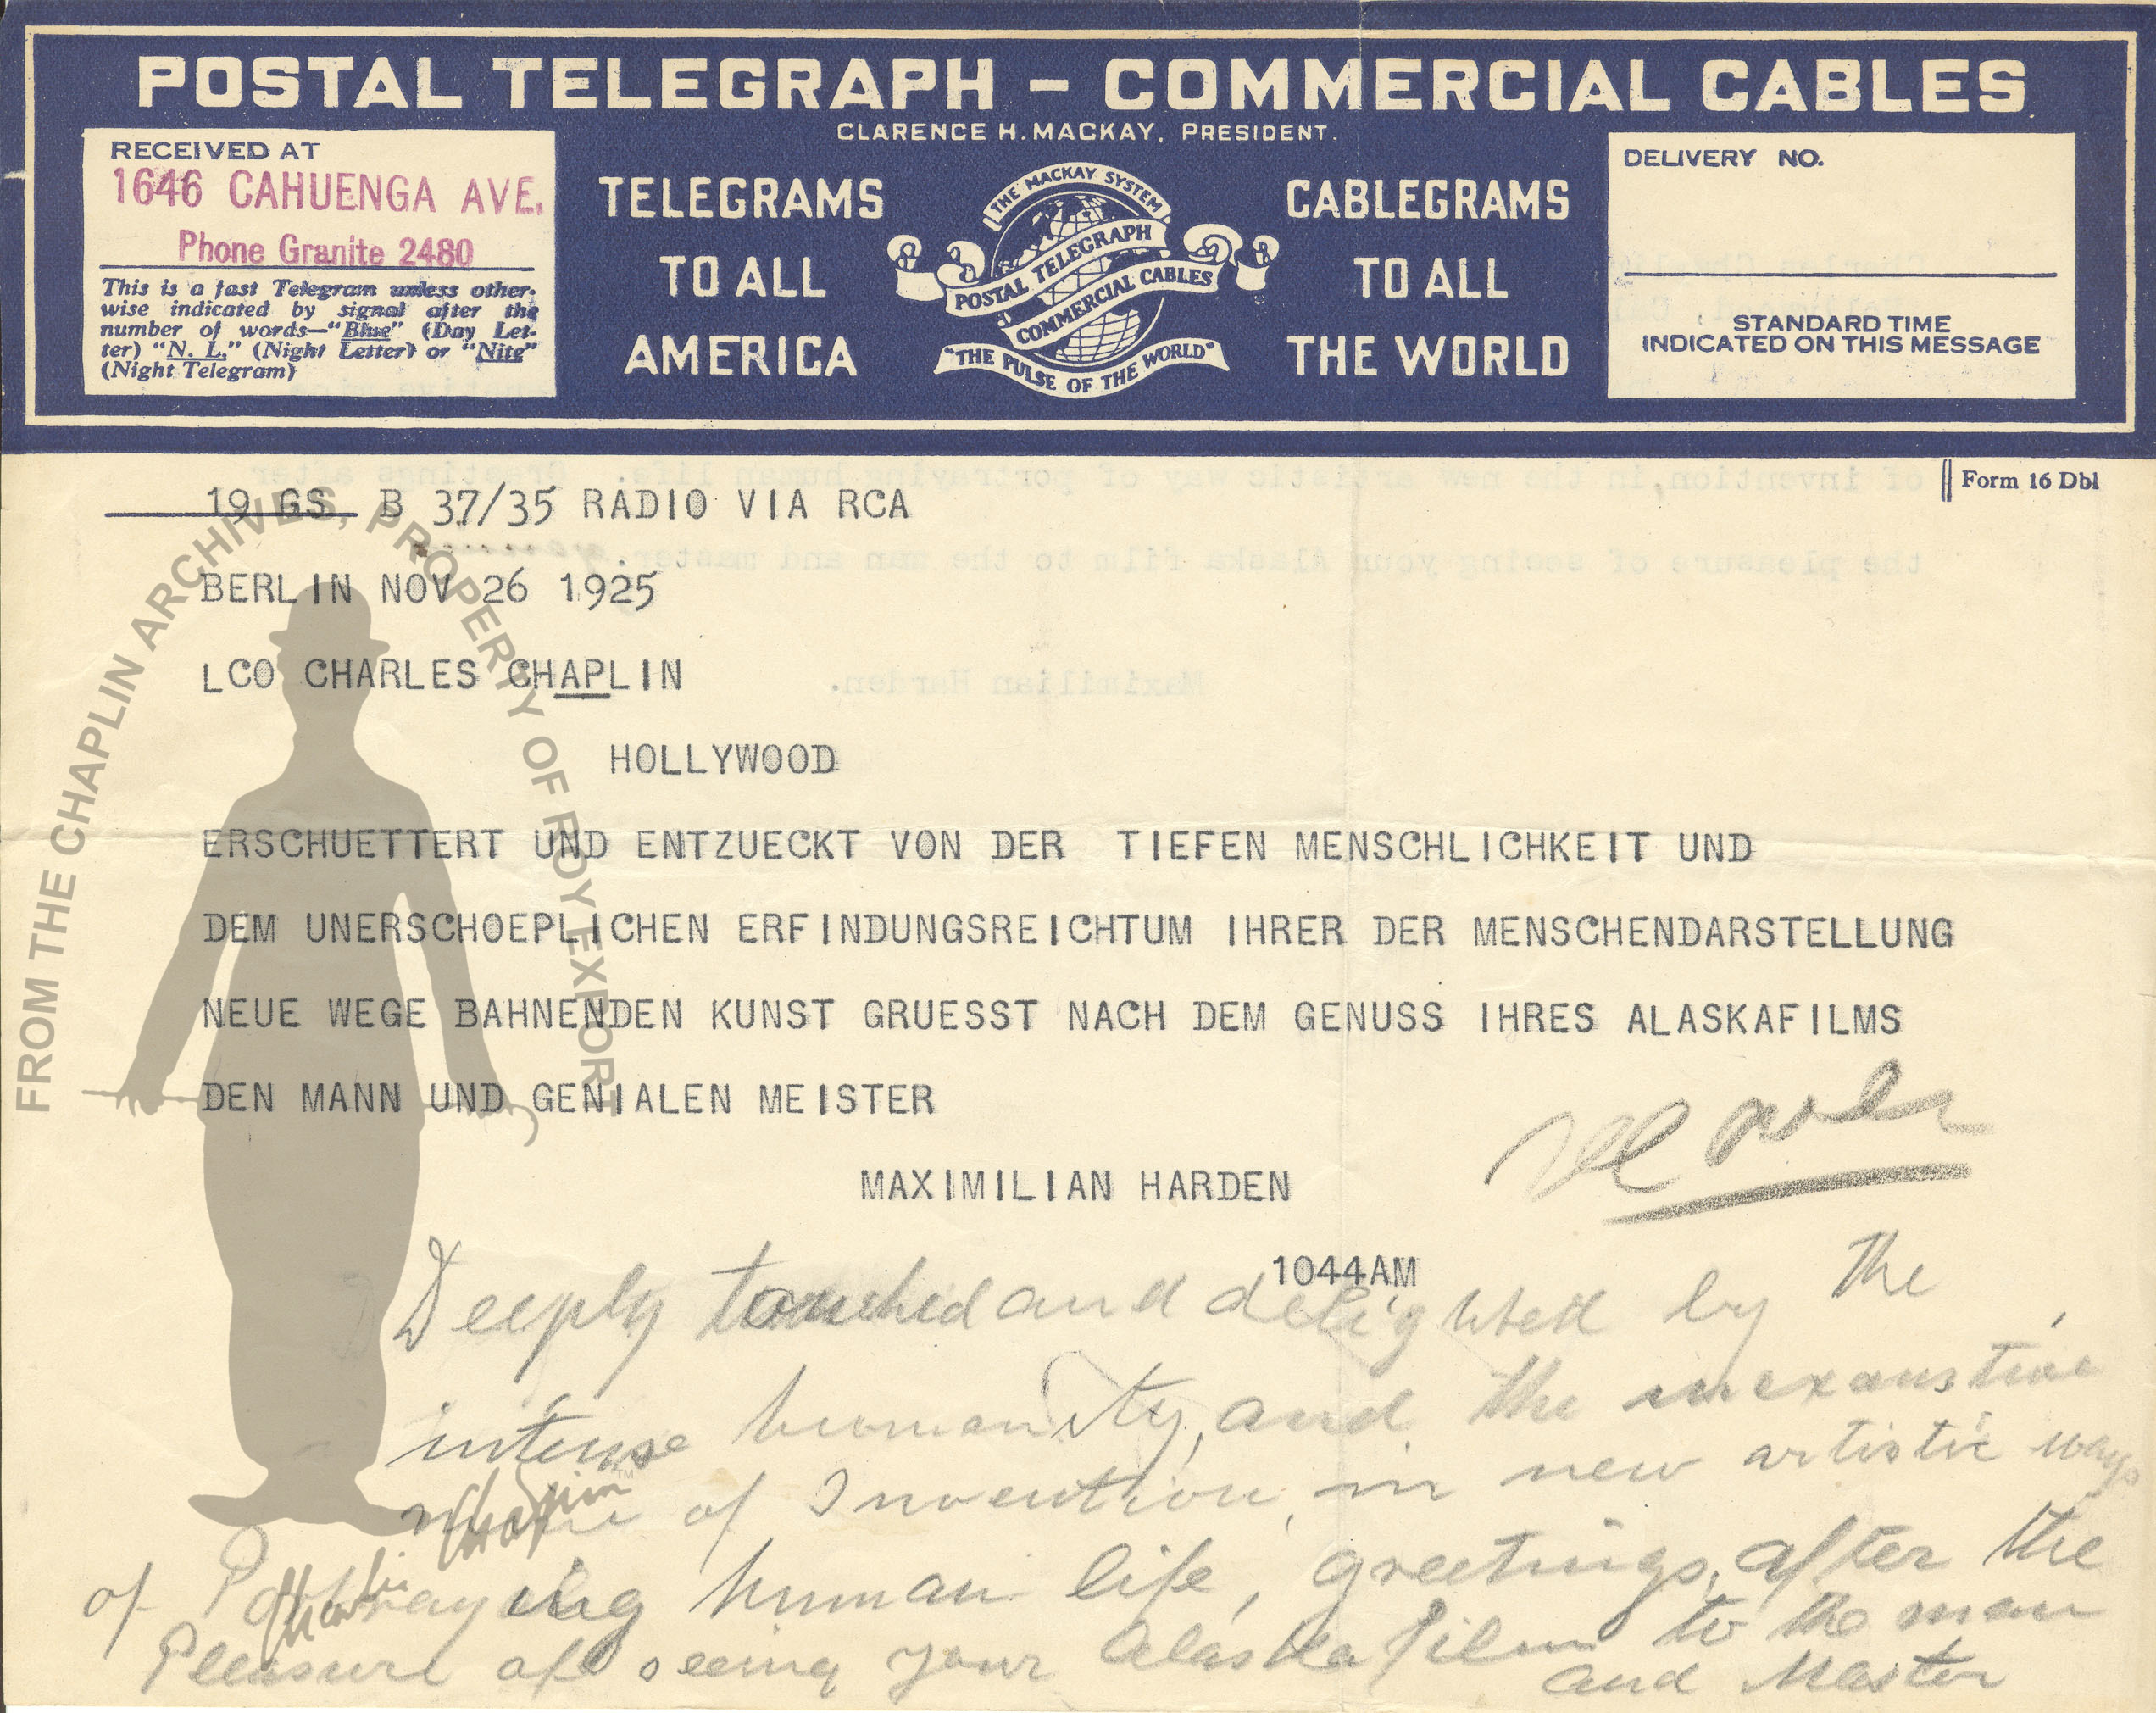 POSTAL TELEGRAPH - COMMERCIAL CABLES
CLARENCE H. MACKAY, PRESIDENT.
RECEIVED AT
1646 CAHUENGA AVE.
Phone Granite 2480
This is a fast Telegram unless other-
wise indicated by signal after the
number of words—"Blue" (Day Let-
ter) "N. L." (Night Letter) or "Nite"
(Night Telegram)
TELEGRAMS
TO ALL
AMERICA
THE MACKAY SYSTEM
POSTAL TELEGRAPH
COMMERCIAL CABLES
"THE PULSE OF THE WORLD"
CABLEGRAMS
TO ALL
THE WORLD
DELIVERY NO.
STANDARD TIME
INDICATED ON THIS MESSAGE
Form 16 Dbl
19 GS, B 37/35 RADIO VIA RCA
BERLIN NOV 26 1925
LCO CHARLES CHAPLIN
HOLLYWOOD
ERSCHUETTERT UND ENTZUECKT VON DER TIEFEN MENSCHLICHKEIT UND
DEM UNERSCHOEPLICHEN ERFINDUNGSREICHTUM IHRER DER MENSCHENDARSTELLUNG
NEUE WEGE BAHNENDEN KUNST GRUESST NACH DEM GENUSS IHRES ALASKAFILMS
DEN MANN UND GENIALEN MEISTER
MAXIMILIAN HARDEN
1044AM
Deeply touched and delighted by the
intense humanity, and the inexaustive
of Invention, in new artistic ways
of Portraying human life, greetings, after the
Pleasure of seeing your Alaska film to the man
and Master
FROM THE CHAPLIN ARCHIVES, PROPERTY OF ROY EXPORT
Charlie Chaplin
TM